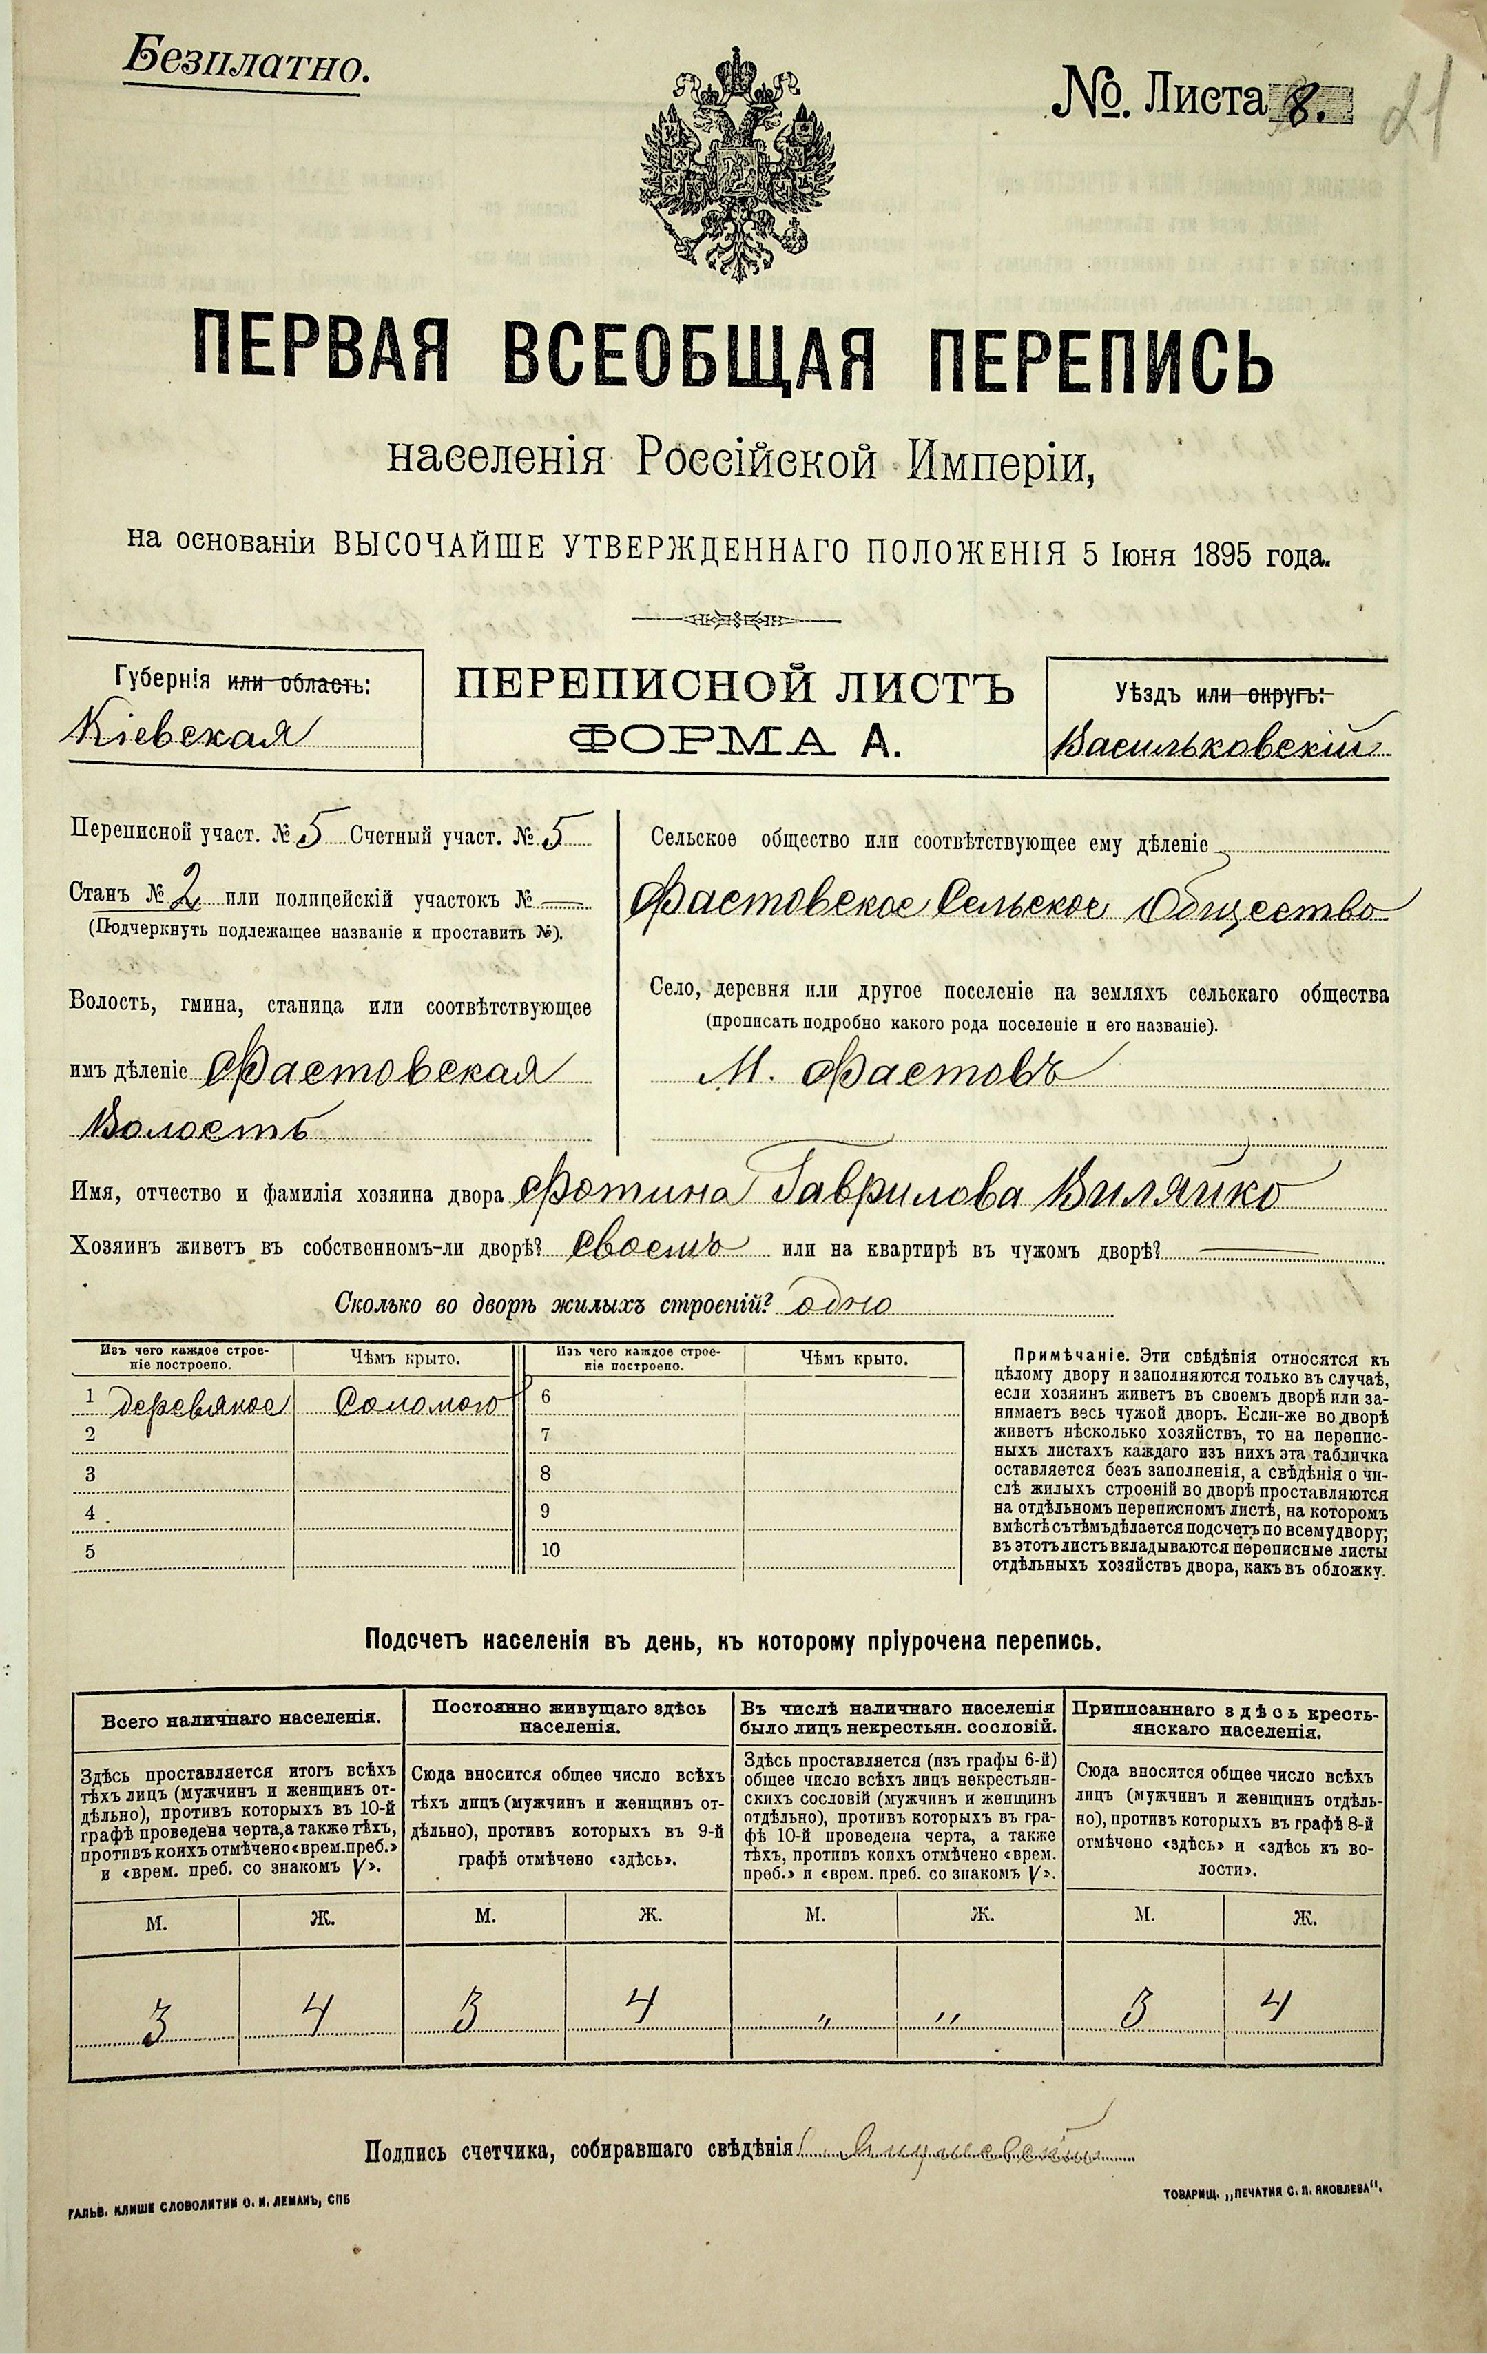 Безплатно.
№. Листа 8.
21
ПЕРВАЯ ВСЕОБЩАЯ ПЕРЕПИСЬ
населенія Россійской Имперіи,
на основаніи ВЫСОЧАЙШЕ УТВЕРЖДЕННАГО ПОЛОЖЕНІЯ 5 Іюня 1895 года.
Губернія или область:
Кіевская
ПЕРЕПИСНОЙ ЛИСТЪ
ФОРМА А.
Уѣздъ или округъ:
Васильковскій
Переписной участ. № 5 Счетный участ. № 5
Станъ № 2 или полицейскій участокъ № —
(Подчеркнуть подлежащее названіе и проставить №).
Волость, гмина, станица или соотвѣтствующее
имъ дѣленіе Фастовская
Волость
Сельское общество или соотвѣтствующее ему дѣленіе
Фастовское Сельское Общество
Село, деревня или другое поселеніе на земляхъ сельскаго общества
(прописать подробно какого рода поселеніе и его названіе).
М. Фастовъ
Имя, отчество и фамилія хозяина двора Фотина Гаврилова Виляйко
Хозяинъ живетъ въ собственномъ-ли дворѣ? своемъ или на квартирѣ въ чужомъ дворѣ? —
Сколько во дворѣ жилыхъ строеній? одно
Изъ чего каждое строе-
ніе построено.
Чѣмъ крыто.
Изъ чего каждое строе-
ніе построено.
Чѣмъ крыто.
1 деревяное Соломою 6
2 7
3 8
4 9
5 10
Примѣчаніе. Эти свѣдѣнія относятся къ
цѣлому двору и заполняются только въ случаѣ,
если хозяинъ живетъ въ своемъ дворѣ или за-
нимаетъ весь чужой дворъ. Если-же во дворѣ
живетъ нѣсколько хозяйствъ, то на перепис-
ныхъ листахъ каждаго изъ нихъ эта табличка
оставляется безъ заполненія, а свѣдѣнія о чи-
слѣ жилыхъ строеній во дворѣ проставляются
на отдѣльномъ переписномъ листѣ, на которомъ
вмѣстѣ съ тѣмъ дѣлается подсчетъ по всему двору;
въ этотъ листъ вкладываются переписные листы
отдѣльныхъ хозяйствъ двора, какъ въ обложку.
Подсчетъ населенія въ день, къ которому пріурочена перепись.
Всего наличнаго населенія.
Здѣсь проставляется итогъ всѣхъ
тѣхъ лицъ (мужчинъ и женщинъ от-
дѣльно), противъ которыхъ въ 10-й
графѣ проведена черта, а также тѣхъ,
противъ коихъ отмѣчено «врем. преб.»
и «врем. преб. со знакомъ V».
М. Ж.
3 4
Постоянно живущаго здѣсь
населенія.
Сюда вносится общее число всѣхъ
тѣхъ лицъ (мужчинъ и женщинъ от-
дѣльно), противъ которыхъ въ 9-й
графѣ отмѣчено «здѣсь».
М. Ж.
3 4
Въ числѣ наличнаго населенія
было лицъ некрестьян. сословій.
Здѣсь проставляется (изъ графы 6-й)
общее число всѣхъ лицъ некрестьян-
скихъ сословій (мужчинъ и женщинъ
отдѣльно), противъ которыхъ въ гра-
фѣ 10-й проведена черта, а также
тѣхъ, противъ коихъ отмѣчено «врем.
преб.» и «врем. преб. со знакомъ V».
М. Ж.
" "
Приписаннаго здѣсь кресть-
янскаго населенія.
Сюда вносится общее число всѣхъ
лицъ (мужчинъ и женщинъ отдѣль-
но), противъ которыхъ въ графѣ 8-й
отмѣчено «здѣсь» и «здѣсь къ во-
лости».
М. Ж.
3 4
Подпись счетчика, собиравшаго свѣдѣнія
ГАЛЬВ. КЛИШЕ СЛОВОЛИТНИ О. И. ЛЕМАНЪ, СПБ
ТОВАРИЩ. „ПЕЧАТНЯ С. П. ЯКОВЛЕВА".